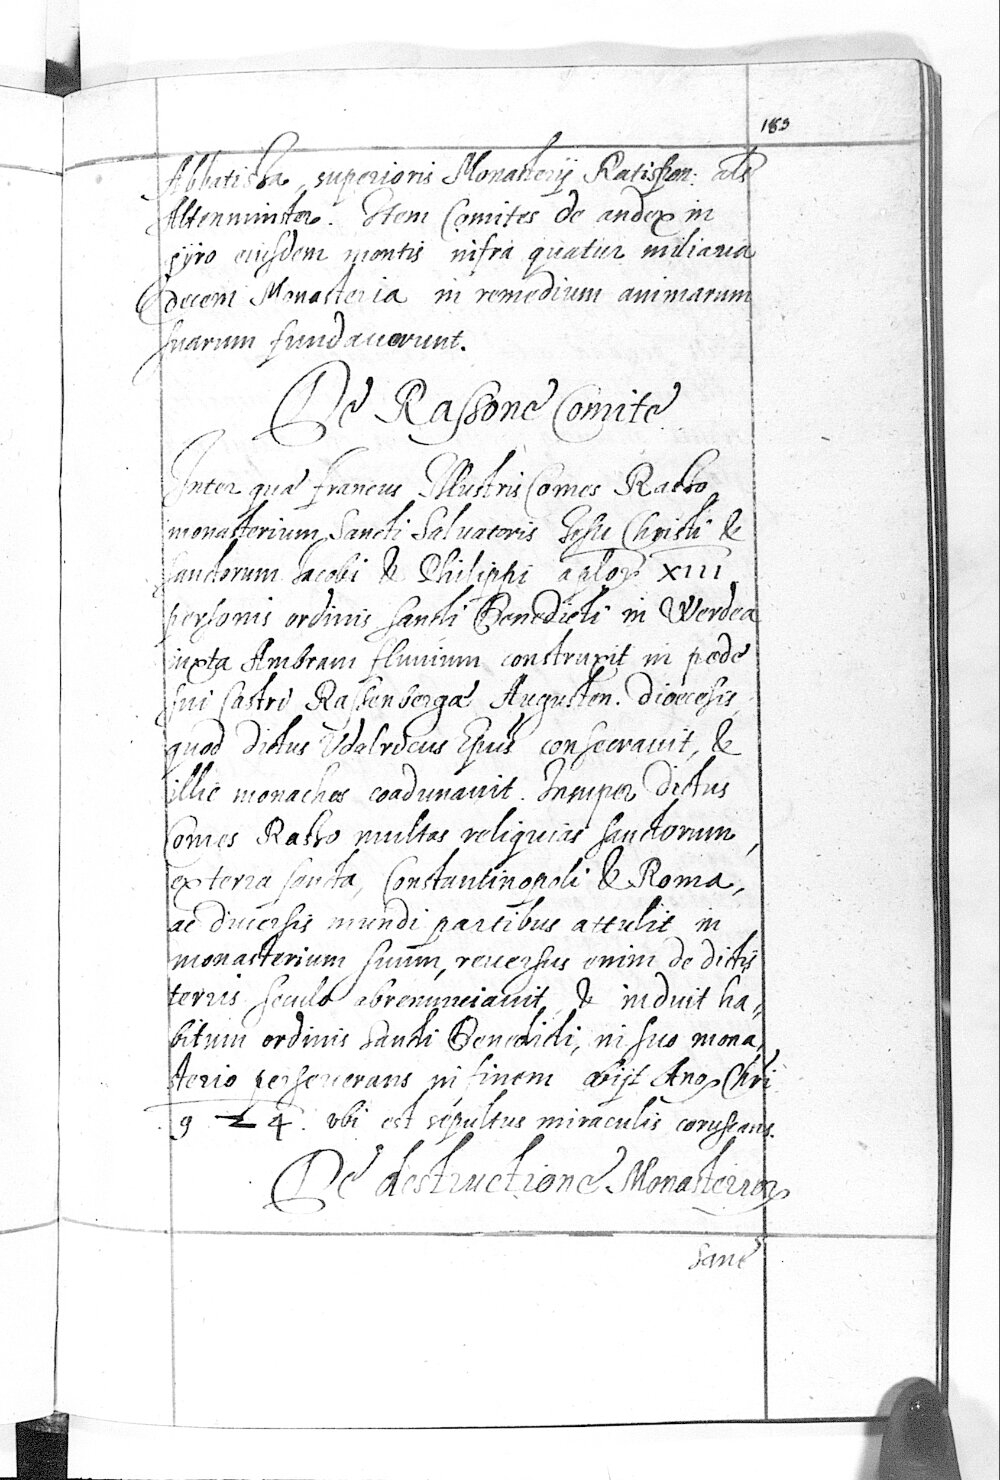 183
Abbatissa superioris Monasterij Ratispon: als
Altenminster. Item Comites de andex in
gÿro eiusdem montis infra quatur miliaria
decem Monasteria in remedium animarum
suarum fundauerunt.
De Rassone Comite
Inter quae francus Illustris Comes Rasso
monasterium Sancti Saluatoris Jesu Christi &
sanctorum Jacobi & Philiphi aplor XIII
personis ordinis sancti Benedicti in Werdea
iuxta Ambram fluuium construxit in pede
sui Castri Rassenberga Augusten. dioecesis,
quod dictus Vdalricus Epus consecrauit, &
illic monachos coadunauit. Insuper dictus
Comes Rasso multas reliquias sanctorum,
ex terra sancta, Constantinopoli & Roma,
ac diuersis mundi partibus attulit in
monasterium suum, reuersus enim de dictis
terris seculo abrenunciauit, & induit ha„
bitum ordinis sancti Benedicti, in suo mona„
sterio perseuerans in finem obijt Ano Chri
9 5 4. vbi est sepultus miraculis coruscans.
De destructione Monasterior
Sane